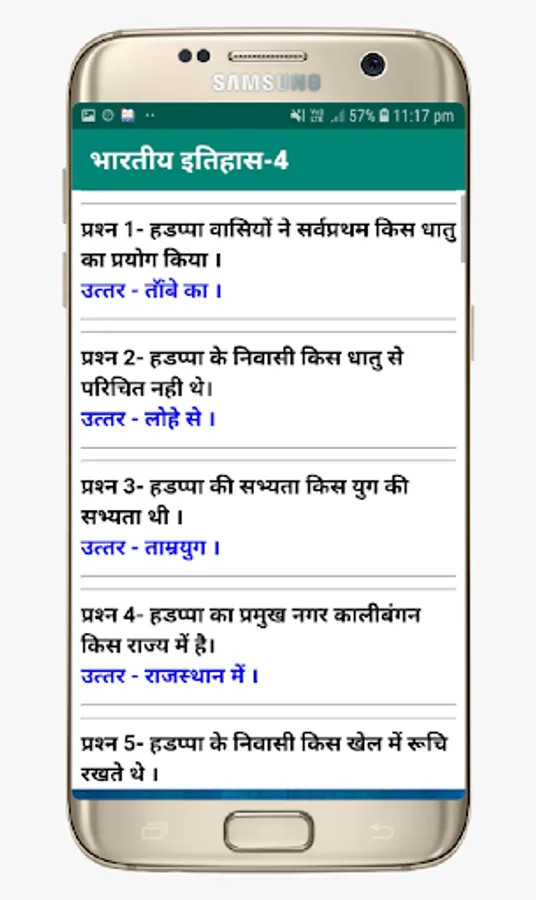 SAMSUNG
57% 11:17 pm
भारतीय इतिहास-4
प्रश्न 1- हडप्पा वासियों ने सर्वप्रथम किस धातु
का प्रयोग किया ।
उत्तर - ताॅंबे का ।
प्रश्न 2- हडप्पा के निवासी किस धातु से
परिचित नही थे।
उत्तर - लोहे से ।
प्रश्न 3- हडप्पा की सभ्यता किस युग की
सभ्यता थी ।
उत्तर - ताम्रयुग ।
प्रश्न 4- हडप्पा का प्रमुख नगर कालीबंगन
किस राज्य में है।
उत्तर - राजस्थान में ।
प्रश्न 5- हडप्पा के निवासी किस खेल में रूचि
रखते थे ।